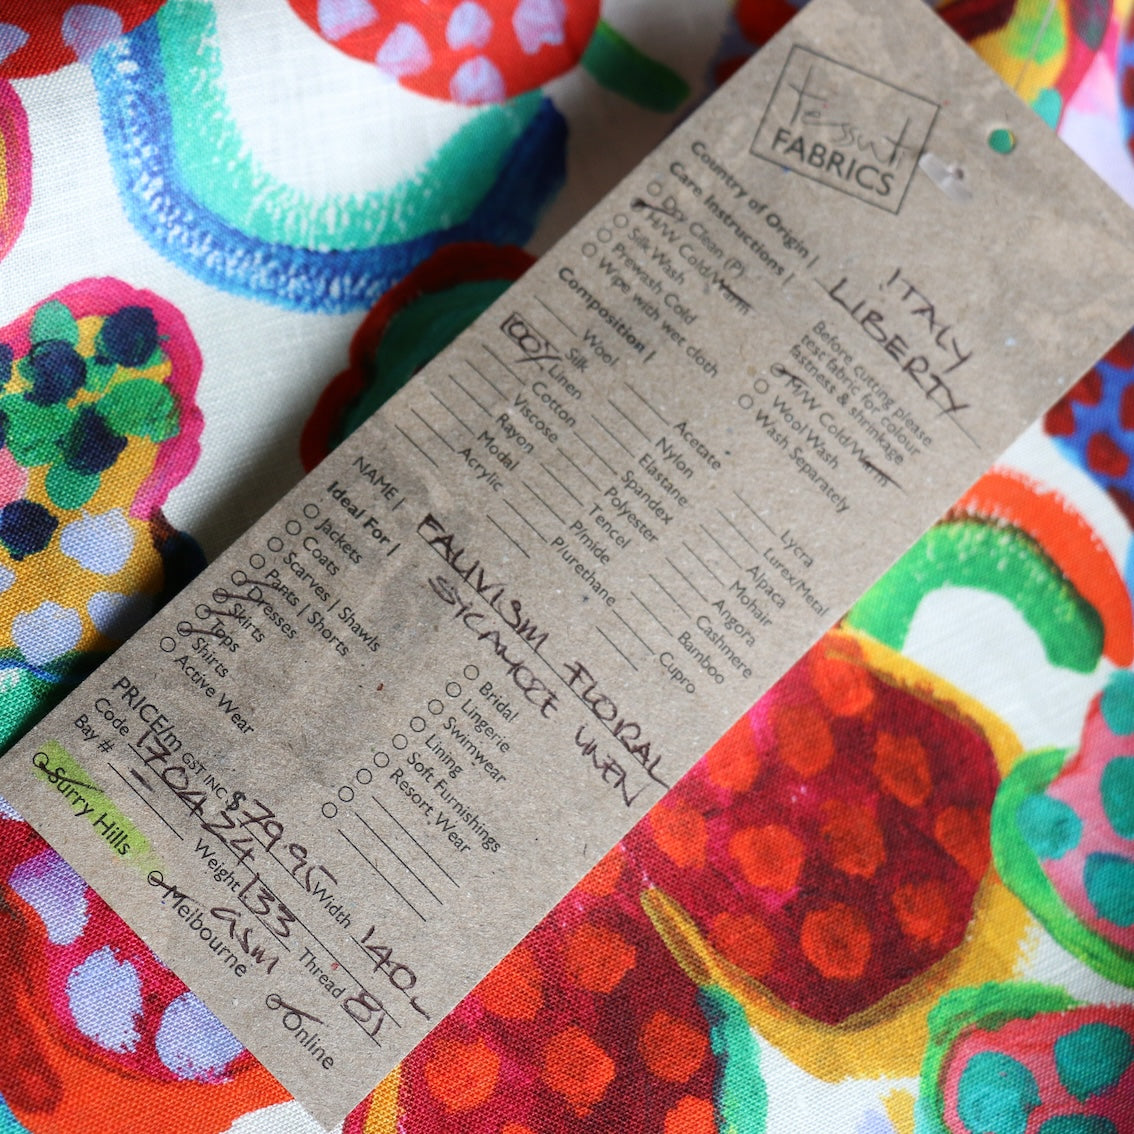 Tessuti
FABRICS
Country of Origin | ITALY
LIBERTY
Care Instructions |
Dry Clean (P)
H/W Cold/Warm
Silk Wash
Prewash Cold
Wipe with wet cloth
Before cutting please
test fabric for colour
fastness & shrinkage
M/W Cold/Warm
Wool Wash
Wash Separately
Composition |
Wool
Silk
100% Linen
Cotton
Viscose
Rayon
Modal
Acrylic
Acetate
Nylon
Elastane
Spandex
Polyester
Tencel
P/mide
P/urethane
Lycra
Lurex/Metal
Alpaca
Mohair
Angora
Cashmere
Bamboo
Cupro
NAME | FAUVISM FLORAL
SYCAMORE LINEN
Ideal For |
Jackets
Coats
Scarves | Shawls
Pants | Shorts
Dresses
Skirts
Tops
Shirts
Active Wear
Bridal
Lingerie
Swimwear
Lining
Soft Furnishings
Resort Wear
PRICE/m GST INC $79.95 Width 140
Code 170424 Weight 133 Thread 81
GSM
Bay # -
Surry Hills
Melbourne
Online